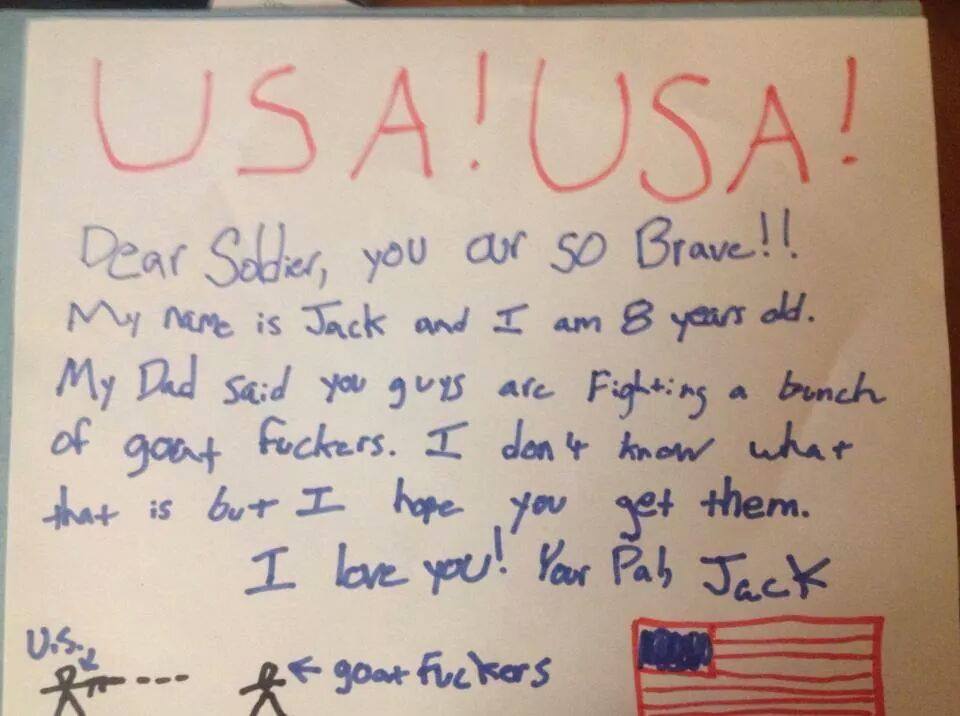 USA! USA!
Dear Soldier, you our so Brave!!
My name is Jack and I am 8 years old.
My Dad said you guys are Fighting a bunch
of goat fuckers. I don't know what
that is but I hope you get them.
I love you! Your Pal, Jack
U.S.
goat Fuckers